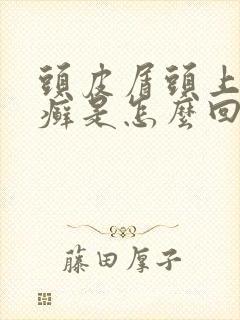 頭皮屑頭上
癬是怎麼回
藤田厚子